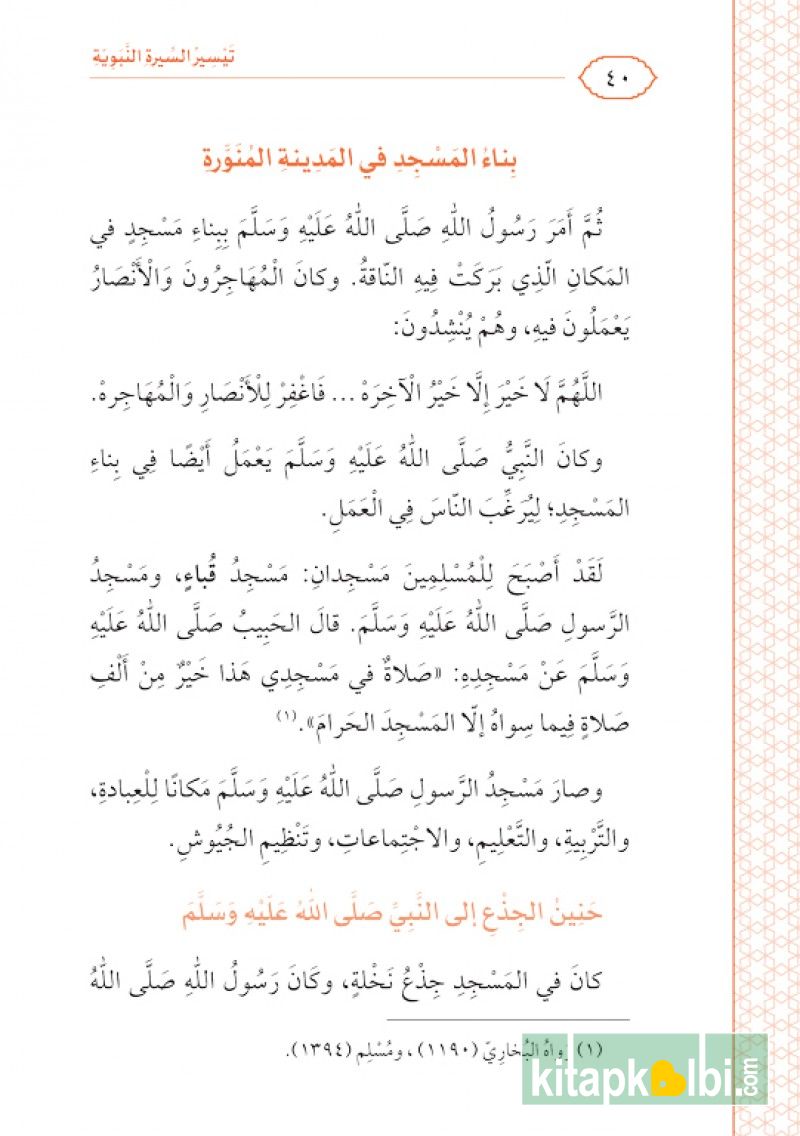 تَيْسِيرُ السِّيرةِ النَّبَوِيَّةِ
٤٠
بِناءُ المَسْجِدِ في المَدِينةِ المُنَوَّرةِ
ثُمَّ أَمَرَ رَسُولُ اللهِ صَلَّى اللهُ عَلَيْهِ وَسَلَّمَ بِبِناءِ مَسْجِدٍ في
المَكانِ الّذِي بَرَكَتْ فِيهِ النّاقةُ. وكانَ الْمُهَاجِرُونَ وَالْأَنْصَارُ
يَعْمَلُونَ فيهِ، وهُمْ يُنْشِدُونَ:
اللَّهُمَّ لَا خَيْرَ إِلَّا خَيْرُ الْآخِرَهْ ... فَاغْفِرْ لِلْأَنْصَارِ وَالْمُهَاجِرهْ.
وكانَ النَّبِيُّ صَلَّى اللهُ عَلَيْهِ وَسَلَّمَ يَعْمَلُ أَيْضًا فِي بِناءِ
المَسْجِدِ؛ لِيُرَغِّبَ النّاسَ فِي الْعَمَلِ.
لَقَدْ أَصْبَحَ لِلْمُسْلِمِينَ مَسْجِدانِ: مَسْجِدُ قُباءٍ، ومَسْجِدُ
الرَّسولِ صَلَّى اللهُ عَلَيْهِ وَسَلَّمَ. قالَ الحَبِيبُ صَلَّى اللهُ عَلَيْهِ
وَسَلَّمَ عَنْ مَسْجِدِهِ: «صَلاةٌ في مَسْجِدِي هَذا خَيْرٌ مِنْ أَلْفِ
صَلاةٍ فِيما سِواهُ إلّا المَسْجِدَ الحَرامَ».(١)
وصارَ مَسْجِدُ الرَّسولِ صَلَّى اللهُ عَلَيْهِ وَسَلَّمَ مَكانًا لِلْعِبادةِ،
والتَّرْبِيةِ، والتَّعْلِيمِ، والاجْتِماعاتِ، وتَنْظِيمِ الجُيُوشِ.
حَنِينُ الجِذْعِ إلى النَّبِيِّ صَلَّى اللهُ عَلَيْهِ وَسَلَّمَ
كانَ في المَسْجِدِ جِذْعُ نَخْلةٍ، وكَانَ رَسُولُ اللهِ صَلَّى اللهُ
(١) رَواهُ البُخارِيّ (١١٩٠)، ومُسْلِم (١٣٩٤).
kitapkalbi.com